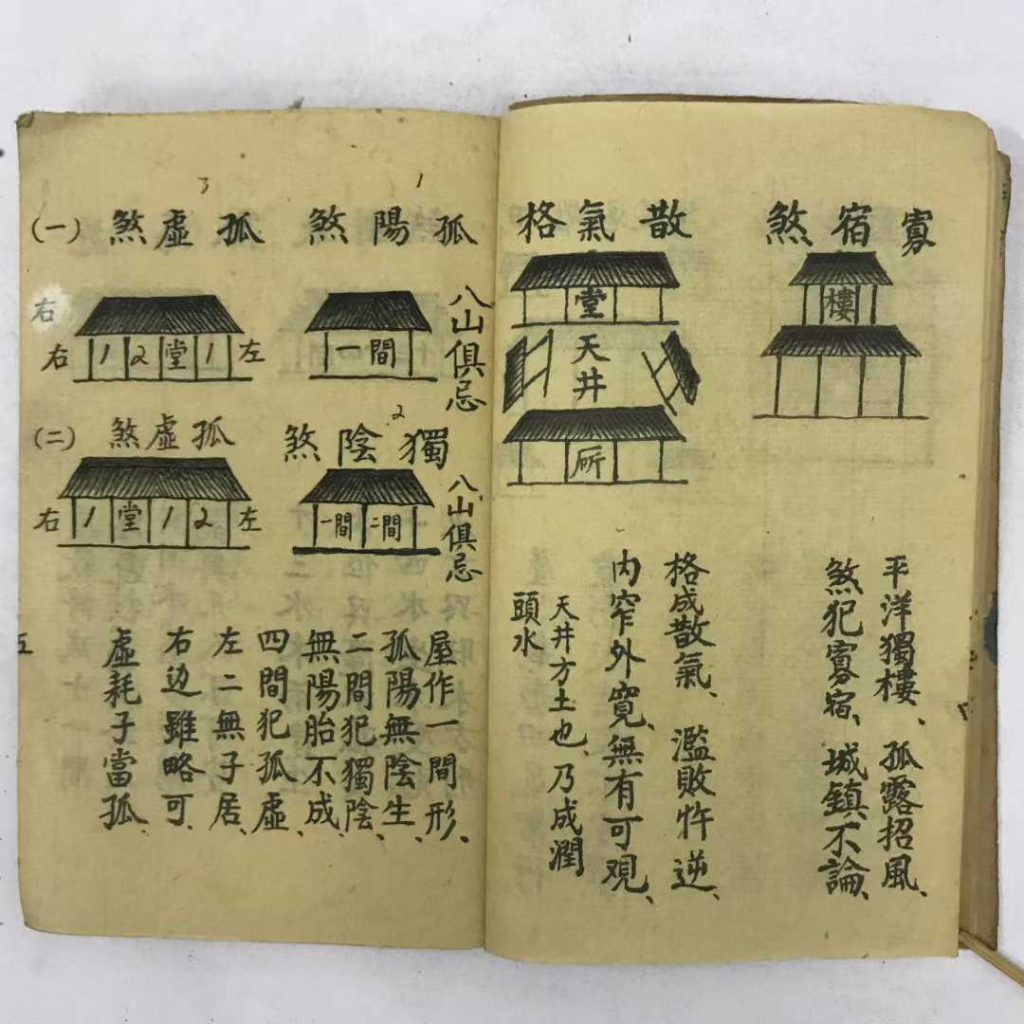 寡宿煞
樓
平洋獨樓、孤露招風、
煞犯寡宿、城鎮不論、
散氣格
堂
天井
格成散氣、濫敗忤逆、
内窄外寬、無有可观、
天井方土也、乃成潤
頭水
1
孤陽煞
八山俱忌
一間
2
獨陰煞
八山俱忌
一間 二間
3
孤虛煞(一)
右
右 1 2 堂 1 左
孤虛煞(二)
右 1 堂 1 2 左
屋作一間形、
孤陽無陰生、
二間犯獨陰、
無陽胎不成、
四間犯孤虛、
左二無子居、
右边雖略可、
虛耗子當孤、
五